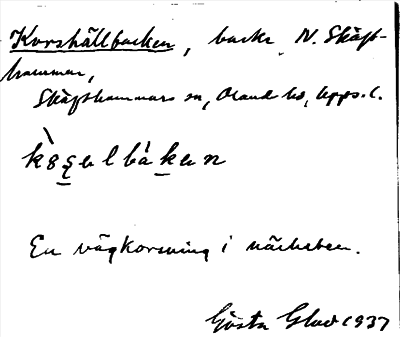 Korshällbacken, backe, N. Skäft-
hammar,
Skäfthammars sn, Oland hd, Upps. l.
En vägkorsning i närheten.
Gösta Glad 1937